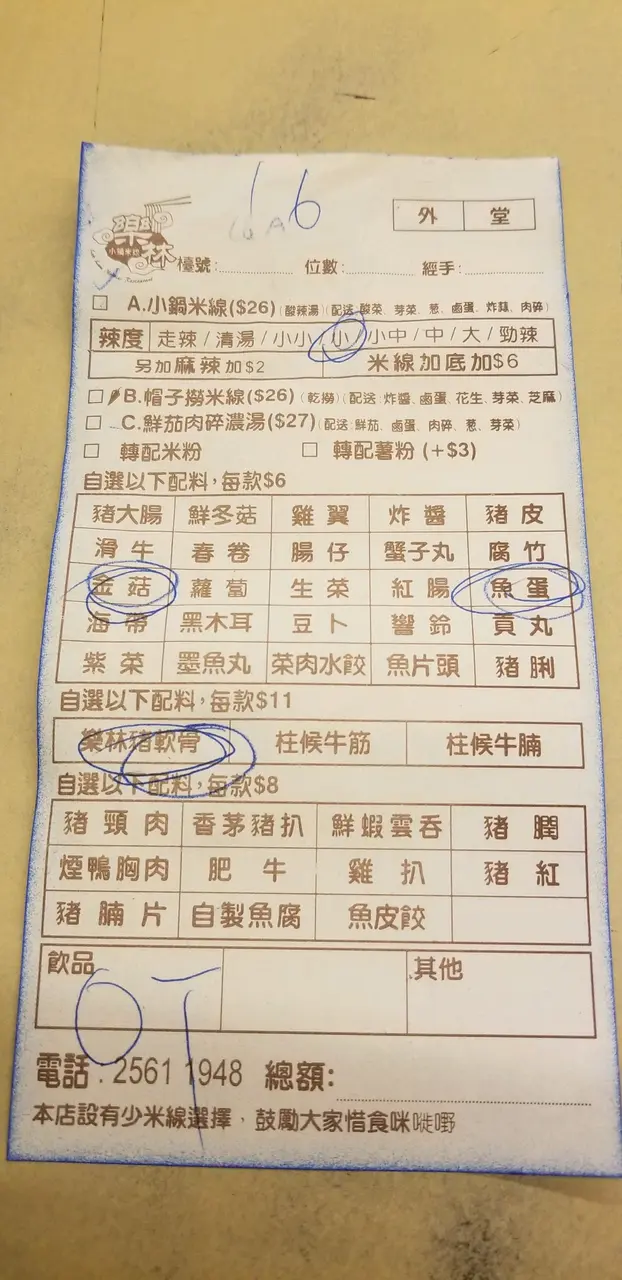 16
外 堂
樂林
小鍋米線
檯號: 位數: 經手:
A.小鍋米線($26) (酸辣湯) (配送 酸菜、芽菜、葱、鹵蛋、炸蒜、肉碎)
辣度 走辣/清湯/小小/小/小中/中/大/勁辣
另加麻辣加$2 米線加底加$6
B.帽子撈米線($26) (乾撈) (配送 炸醬、鹵蛋、花生、芽菜、芝麻)
C.鮮茄肉碎濃湯($27) (配送 鮮茄、鹵蛋、肉碎、葱、芽菜)
轉配米粉 轉配薯粉 (+$3)
自選以下配料,每款$6
豬大腸 鮮冬菇 雞翼 炸醬 豬皮
滑牛 春卷 腸仔 蟹子丸 腐竹
金菇 蘿蔔 生菜 紅腸 魚蛋
海帶 黑木耳 豆卜 響鈴 貢丸
紫菜 墨魚丸 菜肉水餃 魚片頭 豬脷
自選以下配料,每款$11
樂林豬軟骨 柱候牛筋 柱候牛腩
自選以下配料,每款$8
豬頸肉 香茅豬扒 鮮蝦雲吞 豬膶
煙鴨胸肉 肥牛 雞扒 豬紅
豬腩片 自製魚腐 魚皮餃
飲品 其他
OT
電話:2561 1948 總額:
本店設有少米線選擇,鼓勵大家惜食咪嘥嘢